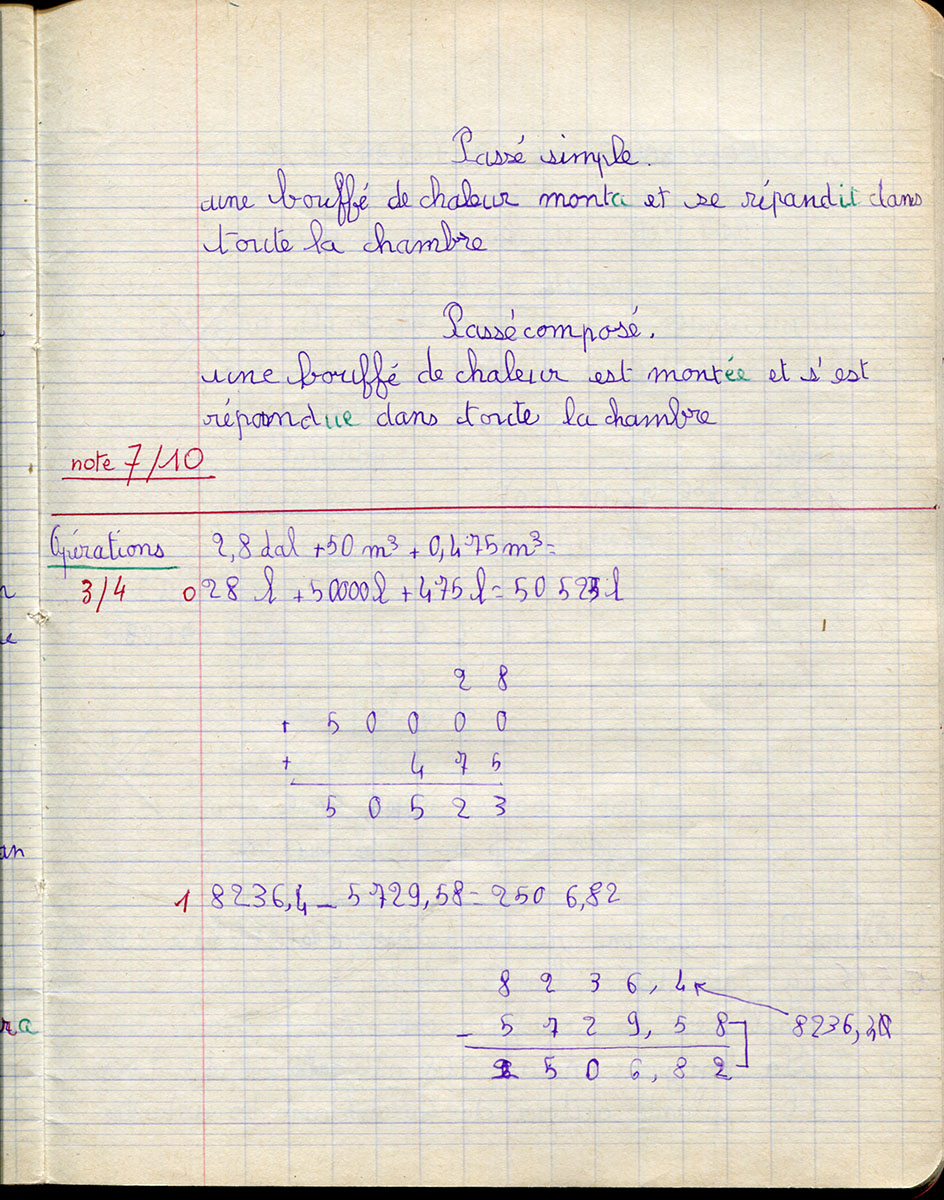 Passé simple.
une bouffé de chaleur monta et se répandit dans
toute la chambre
Passé composé.
une bouffé de chaleur est montée et s'est
répandue dans toute la chambre
note 7/10
Opérations 2,8 dal + 50 m³ + 0,475 m³ =
3/4 0 28 l + 50000 l + 475 l = 50 523 l
2 8
+ 5 0 0 0 0
+ 4 7 5
5 0 5 2 3
an
1 8236,4 - 5729,58 = 2506,82
8 2 3 6, 4
ra - 5 7 2 9, 5 8 8236,40
2 5 0 6, 8 2